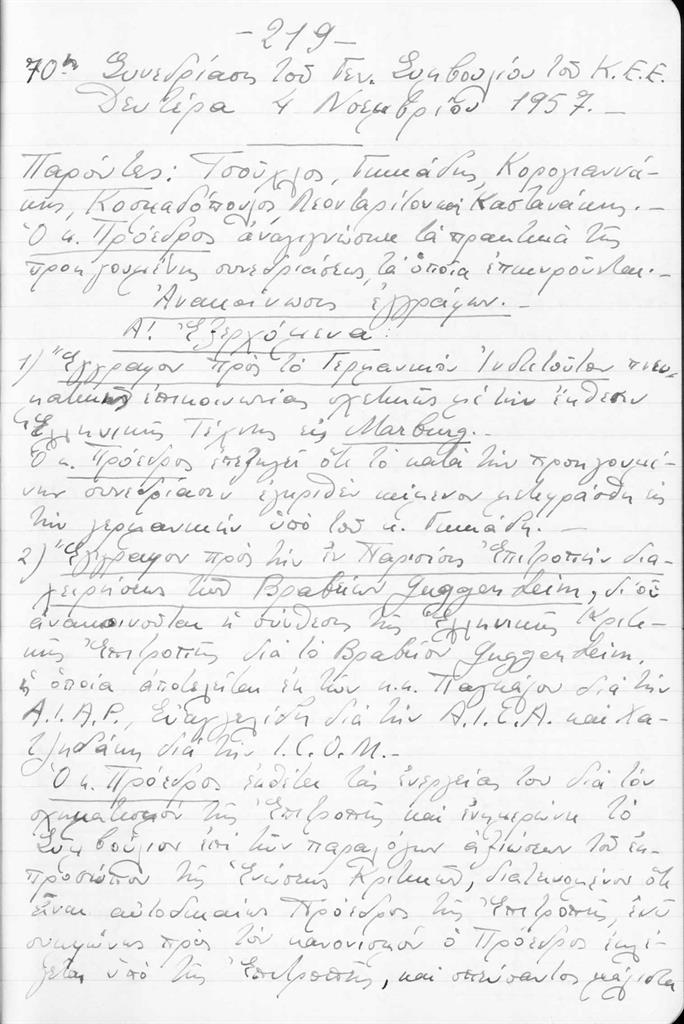 -219-
70η Συνεδρίασις τοῦ Γεν. Συμβουλίου τοῦ Κ.Ε.Ε.
Δευτέρα 4 Νοεμβρίου 1957.-
Παρόντες: Τσοῦχλος, Γκικάδης, Κορογιαννά-
κης, Κοσμαδόπουλος Λεονταρίτου καὶ Καστανάκης.-
Ὁ κ. Πρόεδρος ἀναγιγνώσκει τὰ πρακτικὰ τῆς
προηγουμένης συνεδριάσεως, τὰ ὁποῖα ἐπικυροῦνται.-
Ἀνακοίνωσις ἐγγράφων.-
Α! Ἐξερχόμενα:
1) Ἔγγραφον πρὸς τὸ Γερμανικὸν Ἰνστιτοῦτον πνευ-
ματικῆς ἐπικοινωνίας σχετικῶς μὲ τὴν ἔκθεσιν
Ἑλληνικῆς Τέχνης εἰς Marburg.-
Ὁ κ. Πρόεδρος ἐπεξηγεῖ ὅτι τὸ κατὰ τὴν προηγουμέ-
νην συνεδρίασιν ἐγκριθὲν κείμενον μετεφράσθη εἰς
τὴν γερμανικὴν ὑπὸ τοῦ κ. Γκικάδη.-
2) Ἔγγραφον πρὸς τὴν ἐν Παρισίοις Ἐπιτροπὴν δια-
χειρήσεως τῶν Βραβείων Guggenheim, δι' οὗ
ἀνακοινοῦται ἡ σύνθεσις τῆς Ἑλληνικῆς Κριτι-
κῆς Ἐπιτροπῆς διὰ τὸ Βραβεῖον Guggenheim,
ἡ ὁποία ἀποτελεῖται ἐκ τῶν κ.κ. Παγκάλου διὰ τὴν
A.I.A.P., Εὐαγγελίδη διὰ τὴν A.I.C.A. καὶ Χα-
τζηδάκη διὰ τὴν I.C.O.M.-
Ὁ κ. Πρόεδρος ἐκθέτει τὰς ἐνεργείας του διὰ τὸν
σχηματισμὸν τῆς Ἐπιτροπῆς καὶ ἐνημερώνει τὸ
Συμβούλιον ἐπὶ τῶν παραλόγων ἀξιώσεων τοῦ ἐκ-
προσώπου τῆς Ἑνώσεως Κριτικῶν, διατεινομένου ὅτι
εἶναι αὐτοδικαίως Πρόεδρος τῆς Ἐπιτροπῆς, ἐνῶ
συμφώνως πρὸς τὸν κανονισμὸν ὁ Πρόεδρος ἐκλέ-
γεται ὑπὸ τῆς Ἐπιτροπῆς, καὶ σπεύσαντος μάλιστα